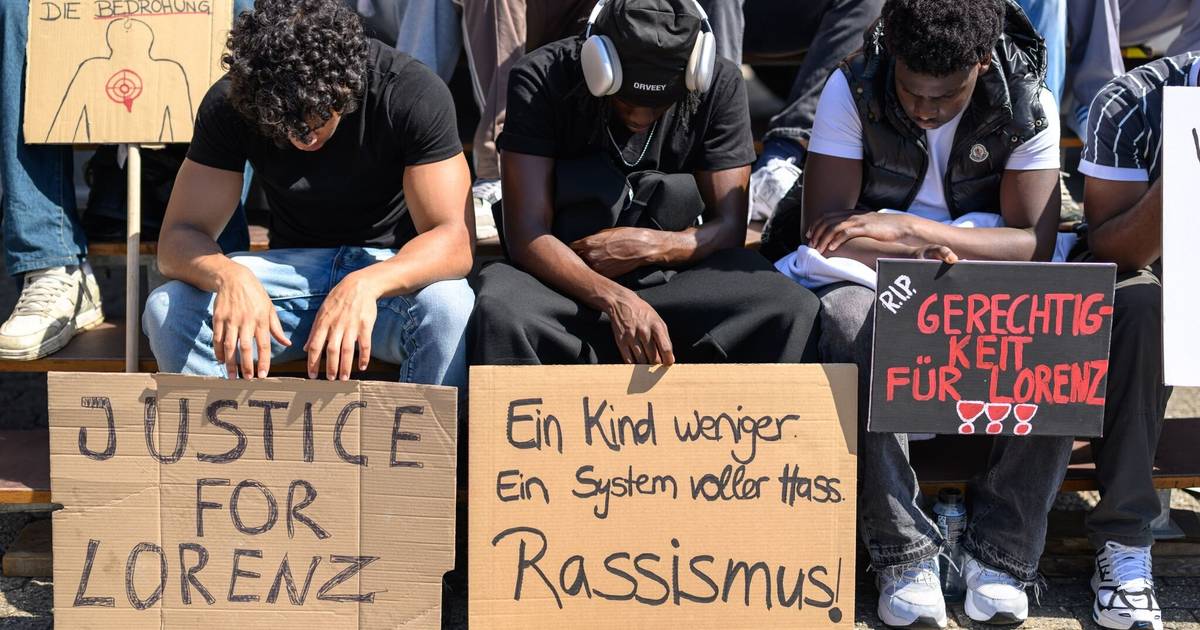 DIE BEDROHUNG
ORVEEY
JUSTICE
FOR
LORENZ
Ein Kind weniger.
Ein System voller Hass.
Rassismus!
R.I.P.
GERECHTIG-
KEIT
FÜR LORENZ
!!!